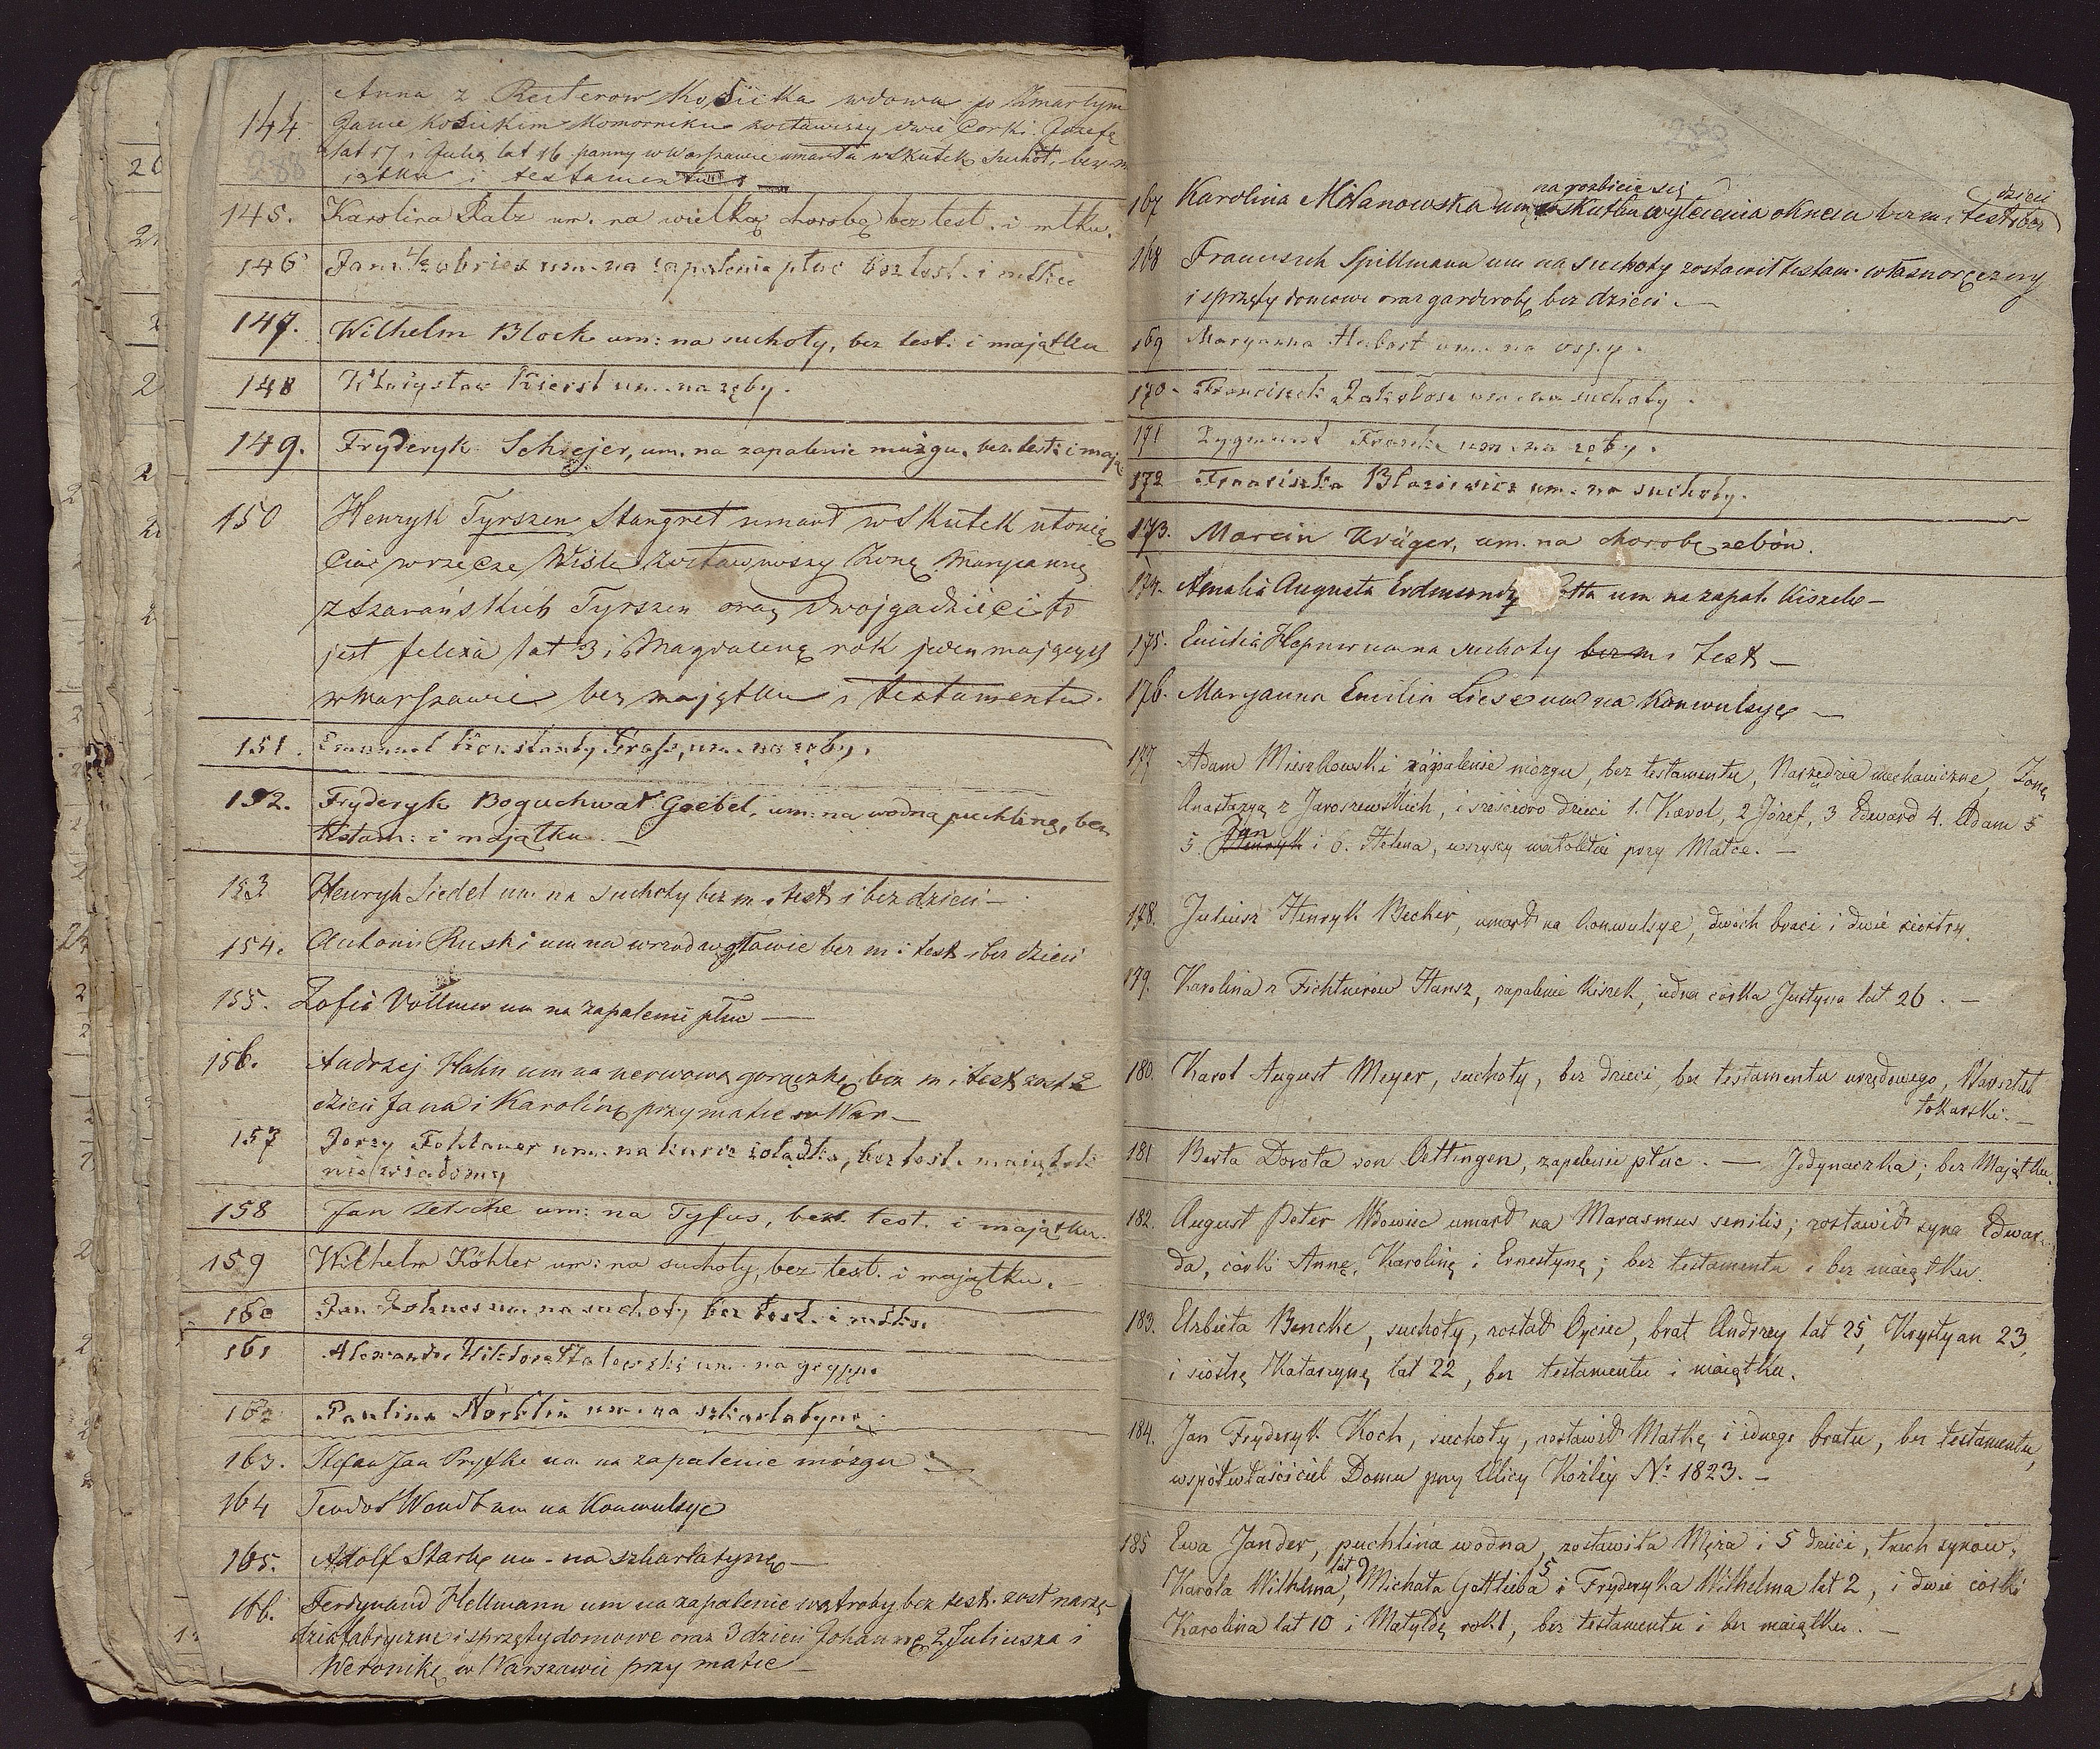 144 Anna z Reiterow Kosiicka wdowa po Zmarłym
Janie Kosickim Komorniku zostawiszy dwie Corki Jozefę
lat 17 i Julię lat 16 panny w Warszawie umarła w Skutek Suchot, bez m
iątku i testamentu
288
145. Karolina Ratz um. na wielką chorobę bez test. i mtku.
146 Jan um. na zapalenia płuc bez test. i mtku
147. Wilhelm Block um: na suchoty, bez test: i majątku
148 Władysław Kierst um. na zęby.
149. Fryderyk Schrejer, um. na zapalenie muzgu, bez test: i mają
150 Henryk Tyrszen Stangret umarł w Skutek utonię
Cia w rzecze Wiśle zostawiwszy Zonę Maryannę
z Szarańskich Tyrszen oraz dwojga dzieci to
jest felixa lat 3 i Magdalenę rok jeden mających
w Warszawie bez majątku i testamentu.
151. Emanuel Konstanty Grass, um. na zęby.
152. Fryderyk Boguchwał Goebel, um: na wodną puchlinę, bez
testam: i majątku. —
153 Henryk Siedel um na suchoty bez m i test i bez dzieci —
154. Antoni Ruski um na wrzod w głowie bez m i test i bez dzieci
155. Zofia Vollmer um na zapalenie płuc —
156. Andrzej Hahn um na nerwową gorączkę bez m i test zost 2
dzieci Jana i Karolinę przy matce w War —
157 Jerzy um. na kurcz żołądka, bez test. majątek
nie wiadomy
158 Jan Zetsche um: na Tyfus, bez test. i majątku.
159 Wilhelm Köhler um: na suchoty, bez test. i majątku.
160 Jan um. na suchoty bez test. i mtku
161 Alexander Wiktor um. na grypę.
162 Paulina Norblin um. na szkarlatynę
163. Stefan Jan Pryfke um na zapalenie mózgu —
164 Teodor Wendt um na Konwulsye
165. Adolf Stark um - na szkarlatynę —
166. Ferdynand Hellmann um na zapalenie wątroby bez test. zost narzę-
dzia fabryczne i sprzęty domowe oraz 3 dzieci Johannę 2 Juliusza i
Weronikę w Warszawie przy matce —
na rozbicie się dzieci
167 Karolina Milanowska um w skutku wylecenia oknem bez m i test bez
168 Franciszek Spillmann um na suchoty zostawił testam. własnoręczny
i sprzęty domowe oraz garderobę bez dzieci. —
169 Maryanna Herbart um. na ospy.
170. Franciszek um. na suchoty.
171 Zygmunt um. na zęby.
172 Franciszka Błaziewicz um. na suchoty.
173. Marcin Krüger, um. na chorobę zebów.
174. Amalia Augusta um na zapal. Kiszek —
175. Emilia Hepner um na suchoty bez m i test —
176. Maryanna Emilia Liese um na Konwulsye —
177 Adam Mieszkowski zapalenie mózgu, bez testamentu, Narzędzia mechaniczne, Zonę
Anastazyą z Jaroszewskich, i sześcioro dzieci 1. Karol, 2 Józef, 3 Edward 4. Adam 5
Jan
5. Henryk i 6. Helena, wszyscy małoletni przy Matce. —
178. Juliusz Henryk Becker, umarł na Konwulsye, dwóch braci i dwie siostry.
179. Karolina z Fichtnerów Hansz, zapalenie Kiszek, jedna córka Justyna lat 26. —
180. Karol August Meyer, suchoty, bez dzieci, bez testamentu urzędowego, Warsztat
tokarski. —
181 Berta Dorota von Oettingen, zapalenie płuc. — Jedynaczka; bez Majątku.
182. August Peter Wdowiec umarł na Marasmus senilis; zostawił syna Edwar
da, córki Annę, Karolinę i Ernestynę; bez testamentu i bez maiątku.
183. Elżbieta Bencke, suchoty, został Oyciec, brat Andrzey lat 25, Krystyan 23,
i siostrę Katarzynę lat 22, bez testamentu i maiątku.
184. Jan Fryderyk Koch, suchoty, zostawił Matkę i iednego bratu, bez testamentu,
współwłaściciel Domu przy Ulicy Koźliy No. 1823. —
185 Ewa Jander, puchlina wodna, zostawiła Męża i 5 dzieci, trzech synów,
lat 7 5
Karola Wilhelma, Michała Gottlieba i Fryderyka Wilhelma lat 2, i dwie córki
Karolina lat 10 i Matyldę rok 1, bez testamentu i bez maiątku. —